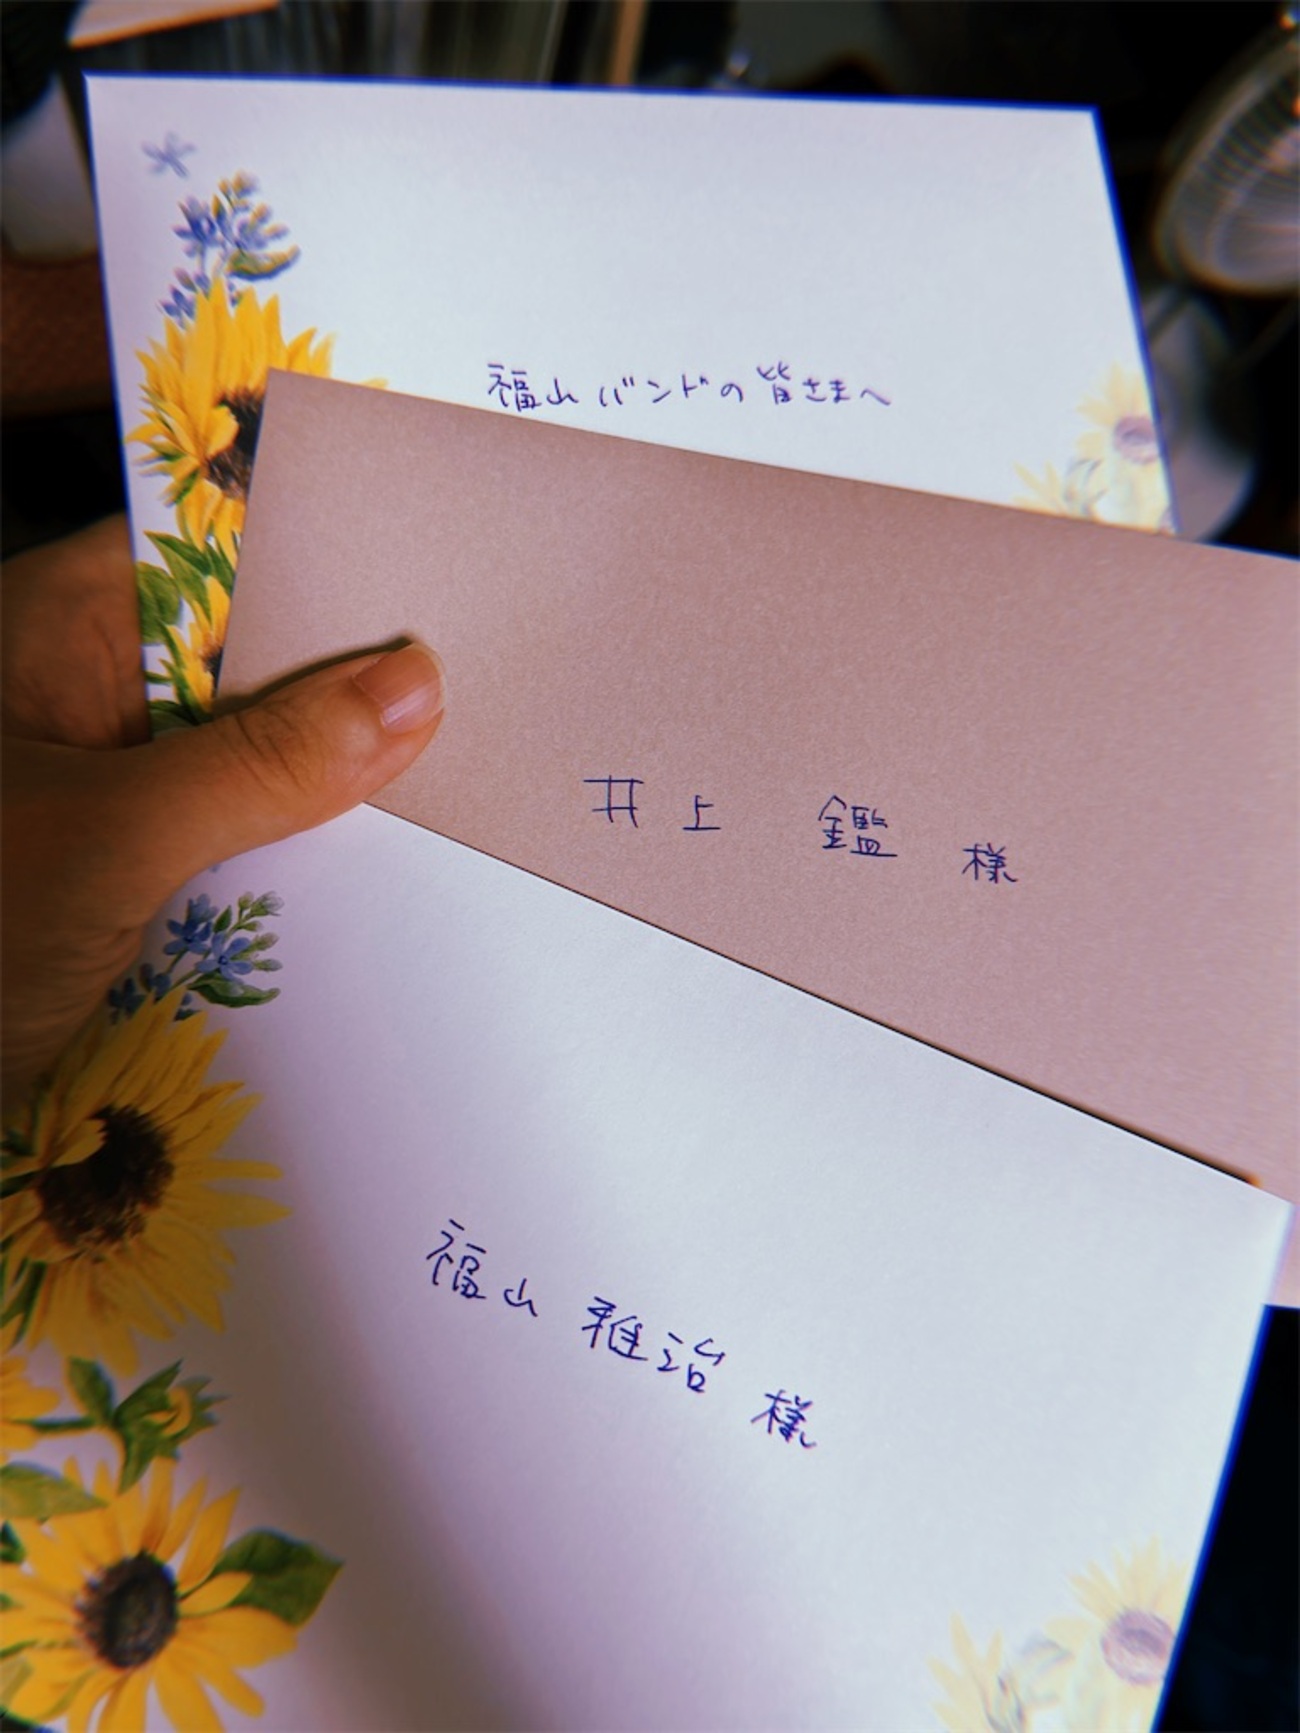 福山バンドの皆さまへ
井上 鑑 様
福山 雅治 様